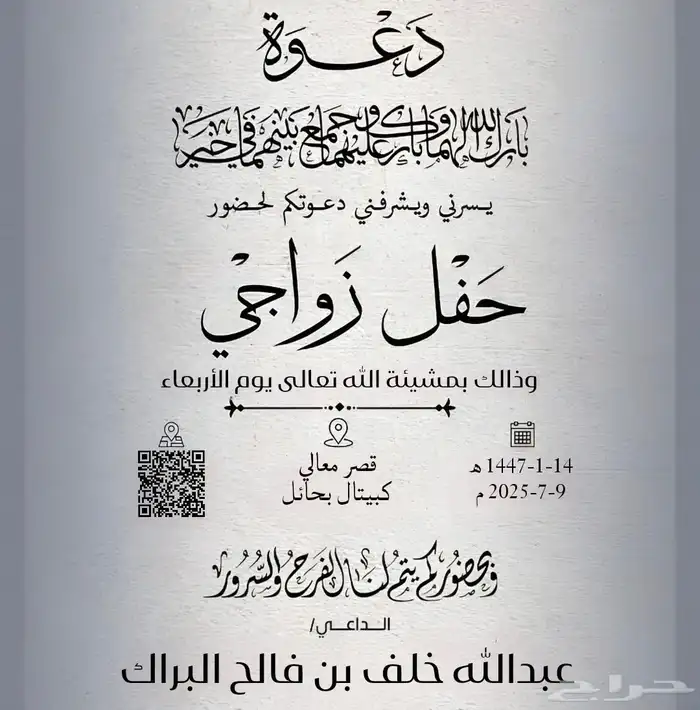 دعوة
بارك الله لهما وبارك عليهما وجمع بينهما في خير
يسرني ويشرفني دعوتكم لحضور
حفل زواجي
وذالك بمشيئة الله تعالى يوم الأربعاء
1447-1-14 هـ
2025-7-9 م
قصر معالي
كبيتال بحائل
وبحضوركم يتم لنا الفرح والسرور
الداعي/
عبدالله خلف بن فالح البراك
حراج